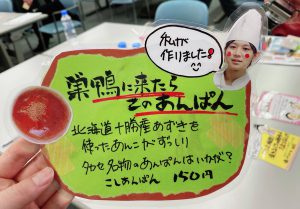 私が
作りました!
巣鴨に来たら
このあんぱん
北海道十勝産あずきを
使ったあんこがずっしり
名物のあんぱんはいかが?
こしあんぱん 150円